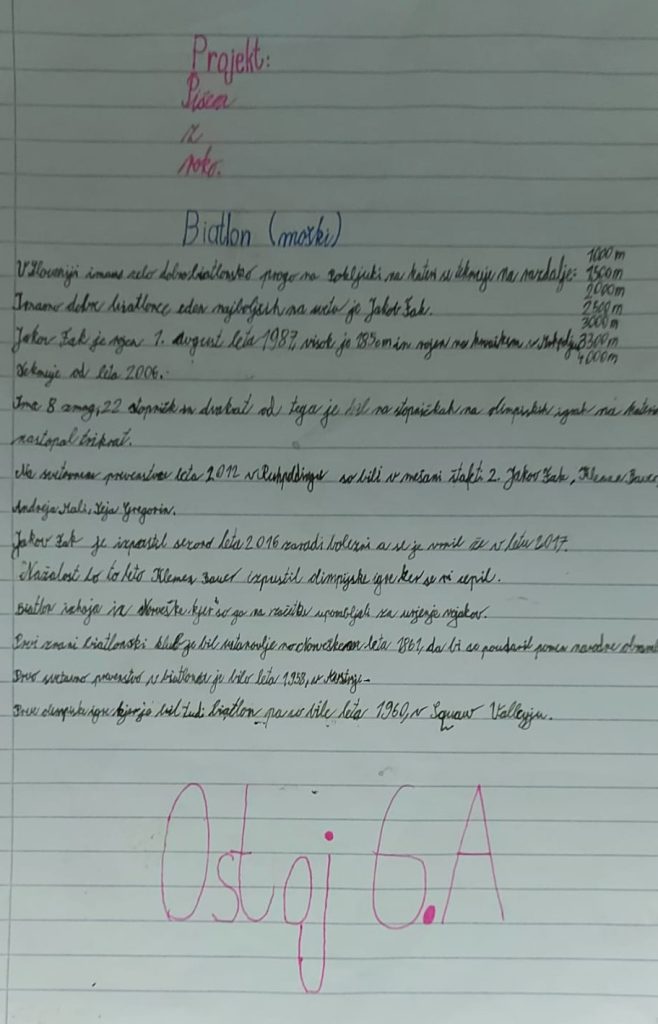 Projekt:
Pišem
z
roko.
Biatlon (moški)
V Sloveniji imamo zelo dobro biatlonsko progo na Pokljuki na kateri se tekmuje na razdalje: 1000m
1500m
2000m
2500m
3000m
3300m
4000m
Imamo dobre biatlonce eden najboljših na svetu je Jakov Fak.
Jakov Fak je rojen 1. avgust leta 1987, visok je 185cm in rojen na hrvaškem v
Tekmuje od leta 2006.
Ima 8 zmag, 22 stopničk in dvakrat od tega je bil na stopničkah na olimpiskih igrah na katerih
nastopal trikrat.
Na svetovnem prvenstvu leta 2012 v Ruhpoldingu so bili v mešani štafeti 2. Jakov Fak, Klemen Bauer,
Andreja Mali, Teja Gregorin.
Jakov Fak je izpustil sezono leta 2016 zaradi bolezni a se je vrnil že v letu 2017.
Nažalost bo to leto Klemen Bauer izpustil olimpijske igre ker se ni cepil.
Biatlon izhaja iz Norveške kjer so ga na začetku uporabljali za urjenje vojakov.
Prvi znani biatlonski klub je bil ustanovlje na Norveškem leta 1861, da bi se poudaril pomen narodne obrambe
Prvo svetovno prvenstvo v biatlonu je bilo leta 1958, v
Prve olimpiske igre kjer je bil tudi biatlon pa so bile leta 1960, v Squaw Valleyju.
Ostoj 6.A